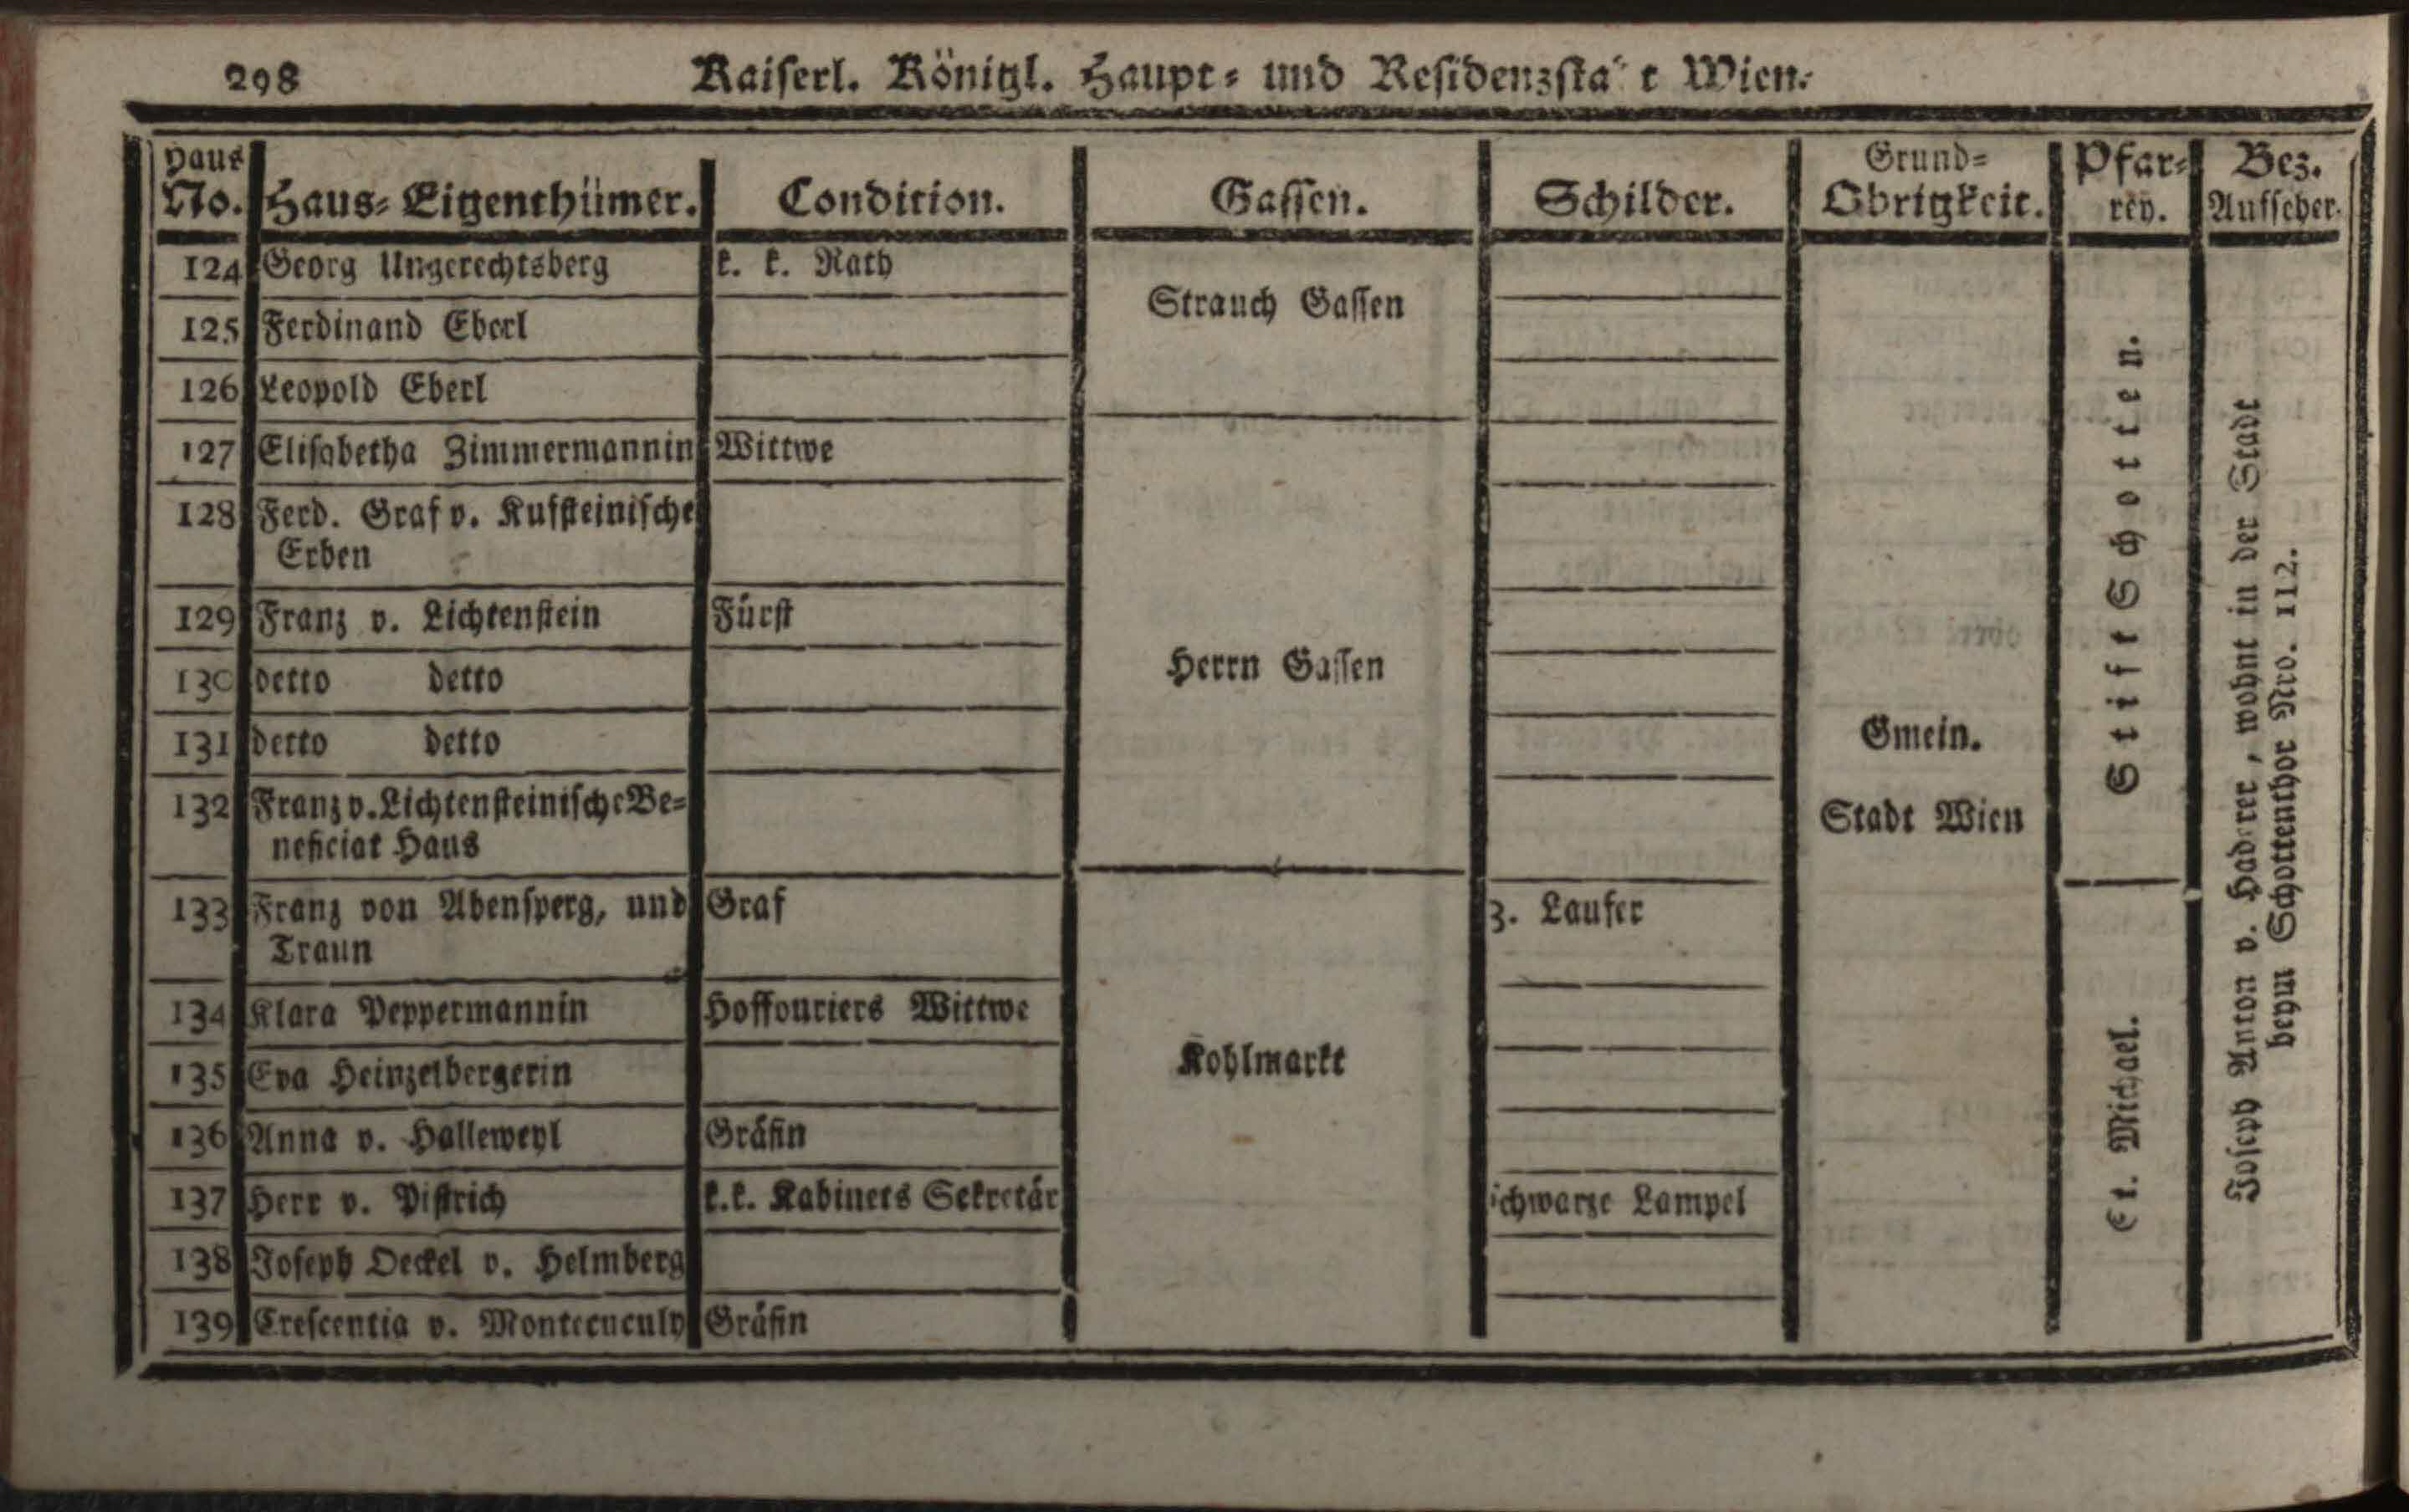 298 Kaiserl. Königl. Haupt- und Residenzsta t Wien.
Haus No. Haus-Eigenthümer. Condition. Gassen. Schilder. Grund-Obrigkeit. Pfar-rey. Bez. Aufseher.
124 Georg Ungerechtsberg k. k. Rath
Strauch Gassen
125 Ferdinand Eberl
126 Leopold Eberl
127 Elisabetha Zimmermannin Wittwe
128 Ferd. Graf v. Kuffsteinische
Erben
129 Franz v. Lichtenstein Fürst
Herrn Gassen
130 detto detto
131 detto detto
Gmein.
Stadt Wien
132 Franz v. Lichtensteinische Be-
neficiat Haus
133 Franz von Abensperg, und Graf 3. Laufer
Traun
134 Klara Peppermannin Hoffouriers Wittwe
Kohlmarkt
135 Eva Heinzelbergerin
136 Anna v. Halleweyl Gräfin
137 Herr v. Pistrich k.k. Kabinets Sekretär schwarze Lampel
138 Joseph Deckel v. Helmberg
139 Crescentia v. Montecuculy Gräfin
Stift Schotten.
St. Michael.
Joseph Anton v. Haderer, wohnt in der Stadt
beym Schottenthor Nro. 112.